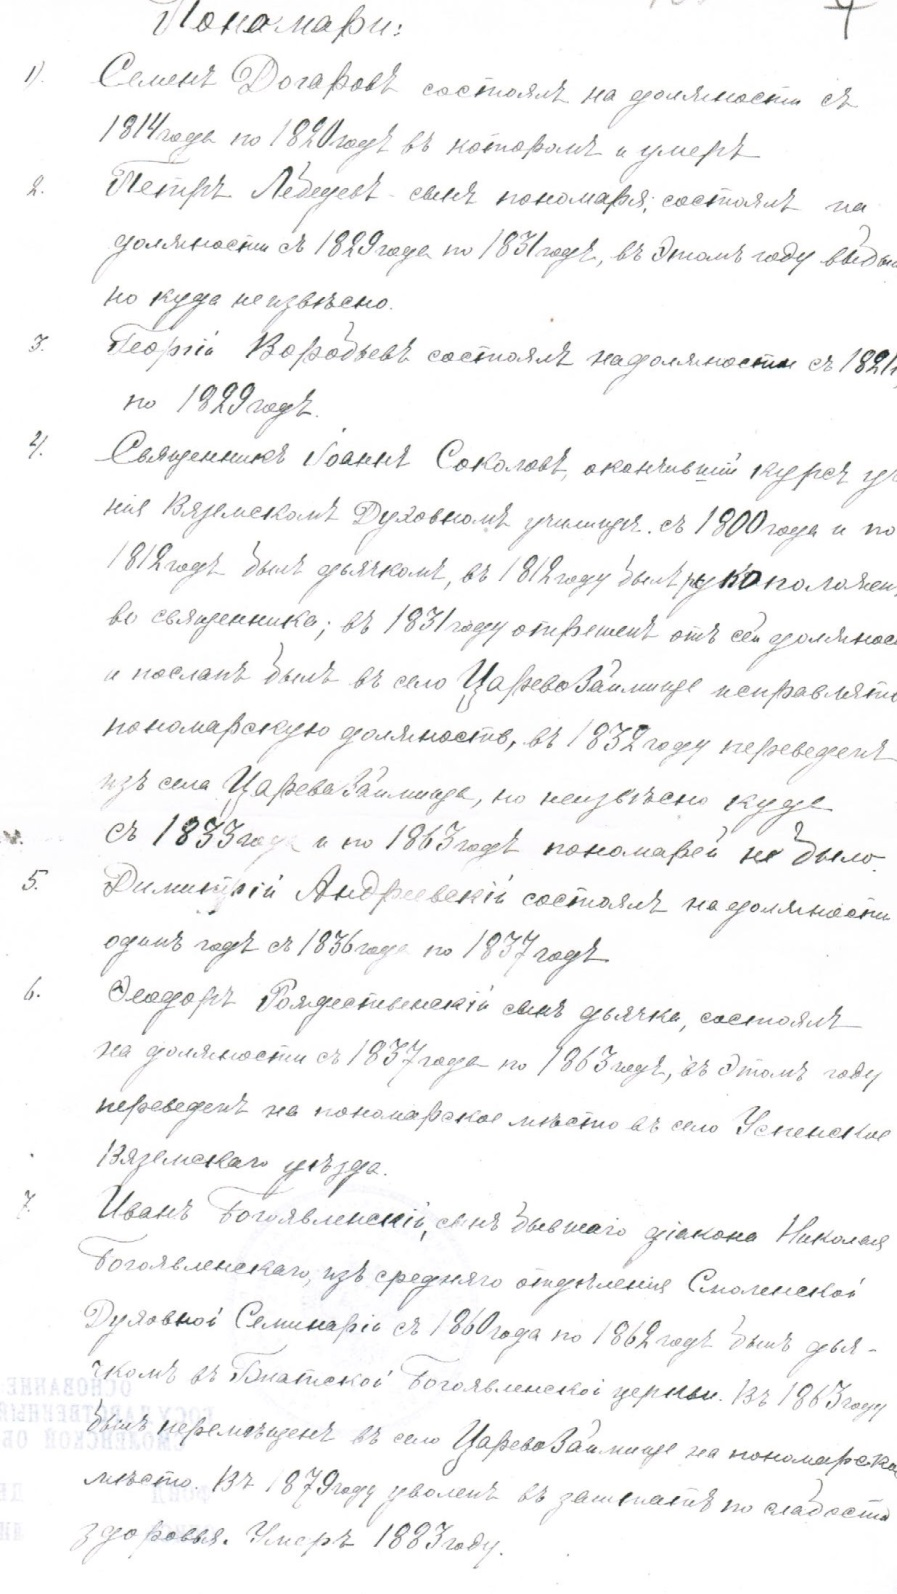 4
Пономари:
1). Семенъ Догаровъ состоялъ на должности съ
1814 года по 1820 годъ въ которомъ и умеръ
2. Петръ Лебедевъ - сынъ пономаря; состоялъ на
должности съ 1829 года по 1831 годъ, въ этомъ году выбы
но куда неизвѣсно.
3. Георгій Воробьевъ состоялъ на должности съ 1821
по 1829 годъ.
4. Священникъ Іоаннъ Соколовъ, окончившій курсъ уч
нія Вяземскомъ Духовномъ училищѣ. съ 1800 года и по
1812 годъ былъ дьячкомъ, въ 1812 году былъ рукоположен
во священника; въ 1831 году отрешенъ отъ сей должнос
и посланъ былъ въ село Царево Займище исправлять
пономарскую должность, въ 1832 году переведенъ
изъ села Царева Займища, но неизвѣсно куда
Съ 1833 года и по 1863 годъ пономарей не было.
5. Димитрій Андреевскій состоялъ на должности
одинъ годъ съ 1836 года по 1837 годъ
6. Ѳеодоръ Рождественскій сынъ дьячка, состоялъ
на должности съ 1837 года по 1863 годъ, въ этомъ году
переведенъ на пономарское мѣсто въ село Успенское
Вяземскаго уѣзда.
7. Иванъ Богоявленскій, сынъ бывшаго діакона Николая
Богоявленскаго, изъ средняго отдѣленія Смоленской
Духовной Семинаріи съ 1860 года по 1862 годъ былъ дья-
чкомъ въ Богоявленской церкви. Въ 1863 году
былъ перемѣщенъ въ село Царево Займище на пономарско
мѣсто. Въ 1879 году уволенъ въ заштатъ по слабости
здоровья. Умеръ 1883 году.